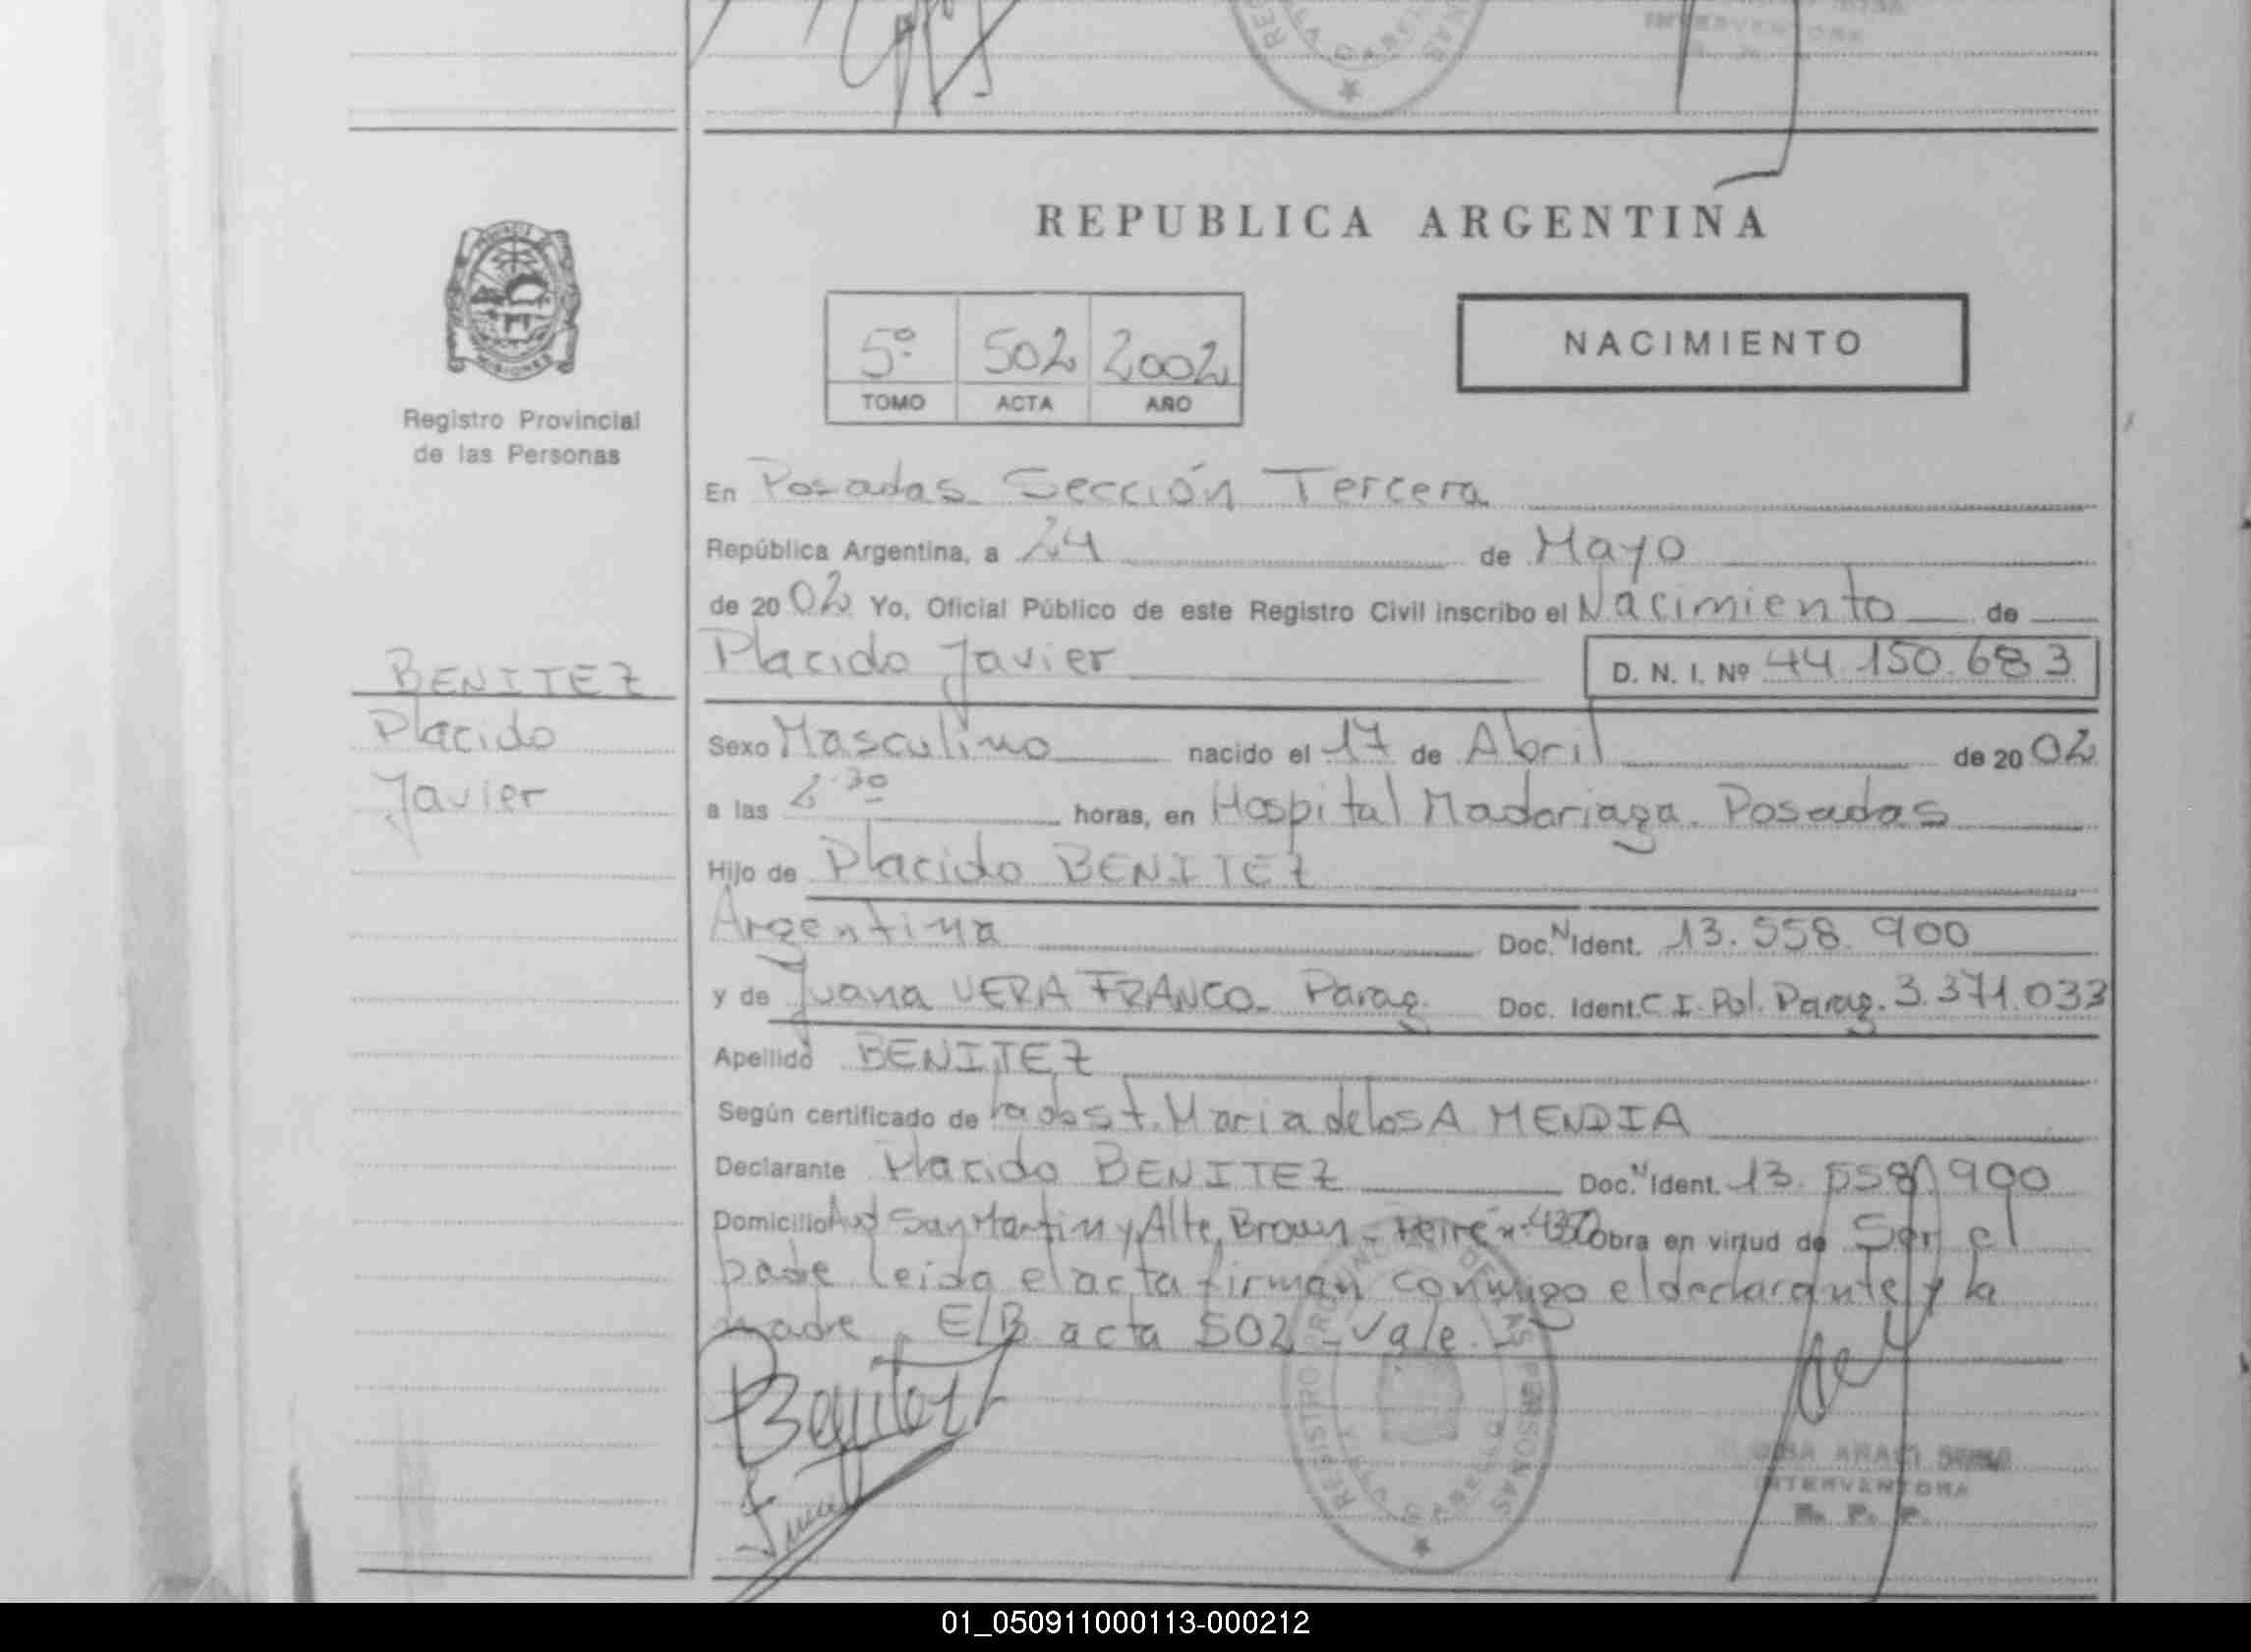 REPUBLICA ARGENTINA
PROVINCIA DE
MISIONES
Registro Provincial
de las Personas
5º 502 2002
TOMO ACTA AÑO
NACIMIENTO
En Posadas Sección Tercera
República Argentina, a 24 de Mayo
de 2002 Yo, Oficial Público de este Registro Civil inscribo el Nacimiento de
BENITEZ
Placido
Javier
Placido Javier D. N. I. Nº 44.150.683
Sexo Masculino nacido el 17 de Abril de 2002
a las 2:30 horas, en Hospital Madariaga. Posadas
Hijo de Placido BENITEZ
Argentina Doc.N Ident. 13.558.900
y de Juana VERA FRANCO - Parag. Doc. Ident. C.I. Pol. Parag. 3.371.033
Apellido BENITEZ
Según certificado de la obst. Maria de los A MENDIA
Declarante Placido BENITEZ Doc.N Ident. 13.558.900
Domicilio Avd San Martin y Alte. Brown - obra en virtud de Ser el
padre leida el acta firman conmigo el declarante y la
madre. E/B acta 502 - Vale. -
Benitez
REGISTRO PROVINCIAL DE LAS PERSONAS
INTERVENTORA
R. P. P.
01_050911000113-000212